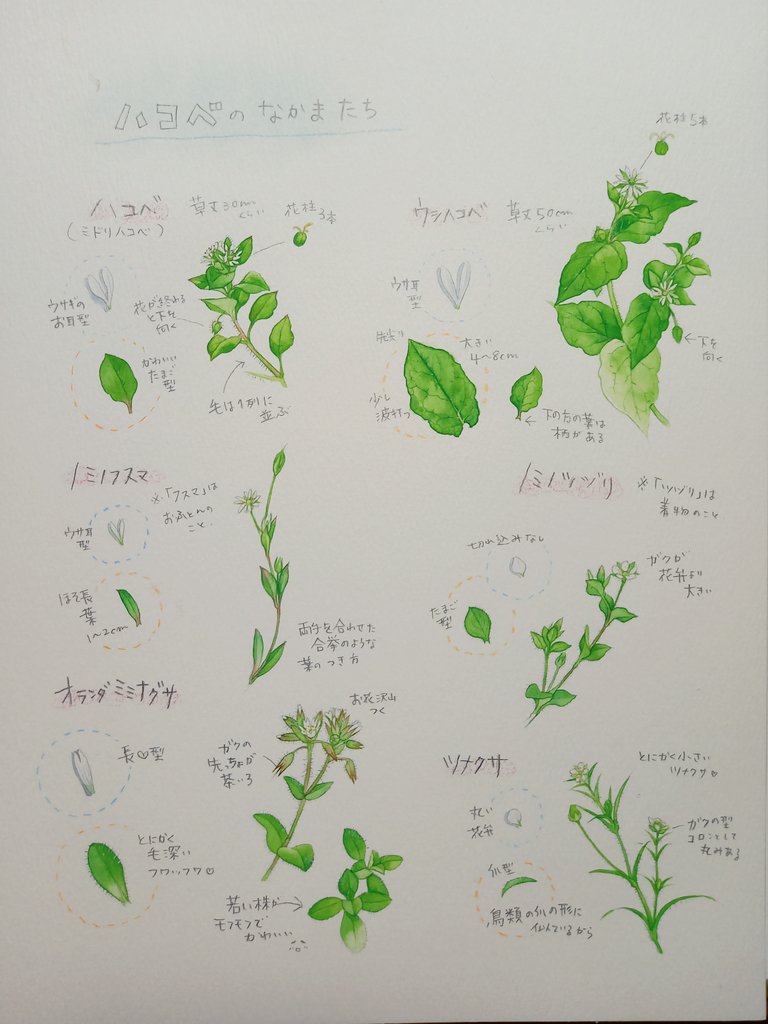 ハコベのなかまたち
ハコベ
(ミドリハコベ)
草丈30cm
くらい
花柱
3本
ウサギの
お耳型
花が終わる
と下を
向く
かわいい
たまご
型
毛は1列に
並ぶ
ウシハコベ
草丈50cm
くらい
花柱5本
ウサ耳
型
先尖り
大きい
4~8cm
少し
波打つ
下の方の葉は
柄がある
下を
向く
ノミノフスマ
※「フスマ」は
おふとんの
こと.
ウサ耳
型
ほそ長
葉
1~2cm
両手を合わせた
合挙のような
葉のつき方
ノミノツヅリ
※「ツヅリ」は
着物のこと
切れ込みなし
たまご
型
ガクが
花弁より
大きい
オランダミミナグサ
長♡型
とにかく
毛深い
フワッフワ♡
お花沢山
つく
ガクの
先っちょが
茶いろ
若い株が
モフモフで
かわいい
ツメクサ
とにかく小さい
ツメクサ♡
丸い
花弁
爪型
鳥類の爪の形に
似ているから
ガクの型
コロンとして
丸みある